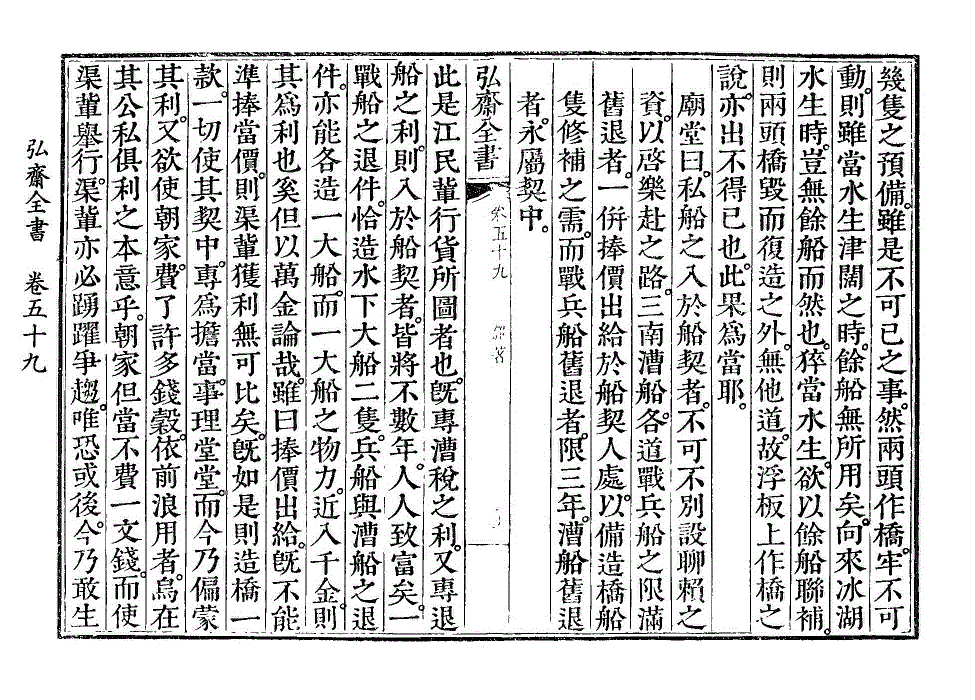 幾隻之預備。雖是不可已之事。然兩頭作橋。牢不可
動。則雖當水生津闊之時。餘船無所用矣。向來冰湖
水生時。豈無餘船而然也。猝當水生。欲以餘船聯補。
則兩頭橋毀而復造之外。無他道。故浮板上作橋之
說。亦出不得已也。此果爲當耶。
廟堂曰。私船之入於船契者。不可不別設聊賴之
資。以啓樂赴之路。三南漕船。各道戰兵船之限滿
舊退者。一倂捧價出給於船契人處。以備造橋船
隻修補之需。而戰兵船舊退者。限三年。漕船舊退
者。永屬契中。
弘齋全書 卷五十九 雜著
此是江民輩行貨所圖者也。旣專漕稅之利。又專退
船之利。則入於船契者。皆將不數年。人人致富矣。一
戰船之退件。恰造水下大船二隻。兵船與漕船之退
件。亦能各造一大船。而一大船之物力。近入千金。則
其爲利也奚但以萬金論哉。雖曰捧價出給。旣不能
準捧當價。則渠輩獲利無可比矣。旣如是則造橋一
款。一切使其契中。專爲擔當。事理堂堂。而今乃偏蒙
其利。又欲使朝家。費了許多錢穀。依前浪用者。烏在
其公私俱利之本意乎。朝家但當不費一文錢。而使
渠輩擧行。渠輩亦必踴躍爭趨。唯恐或後。今乃敢生
弘齋全書 卷五十九